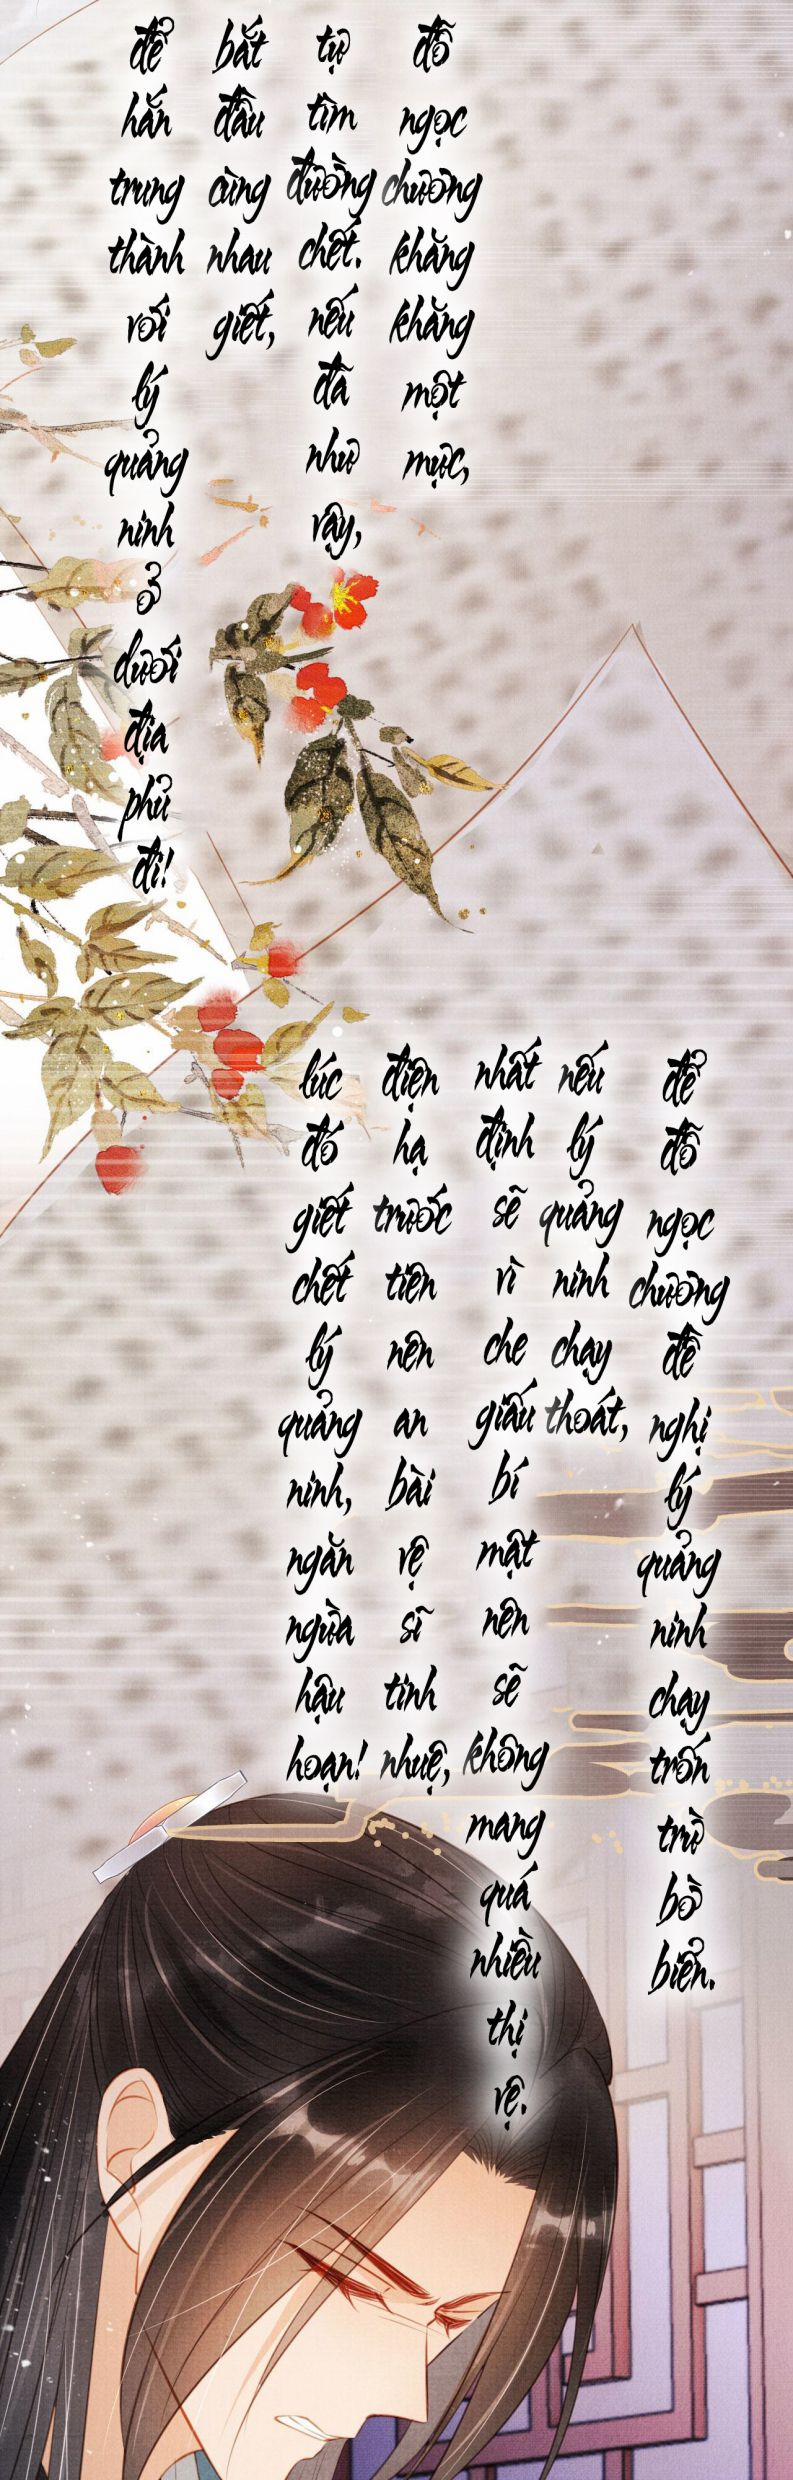 đỗ ngọc chương khăng khăng một mực,
tự tìm đường chết. nếu đã như vậy,
bắt đầu cùng nhau giết,
để hắn trung thành với lý quảng ninh ở dưới địa phủ đi!
để đỗ ngọc chương đề nghị lý quảng ninh chạy trốn trừ bờ biển.
nếu lý quảng ninh chạy thoát,
nhất định sẽ vì che giấu bí mật nên sẽ không mang quá nhiều thị vệ.
điện hạ trước tiên nên an bài vệ sĩ tinh nhuệ,
lúc đó giết chết lý quảng ninh, ngăn ngừa hậu hoạn!